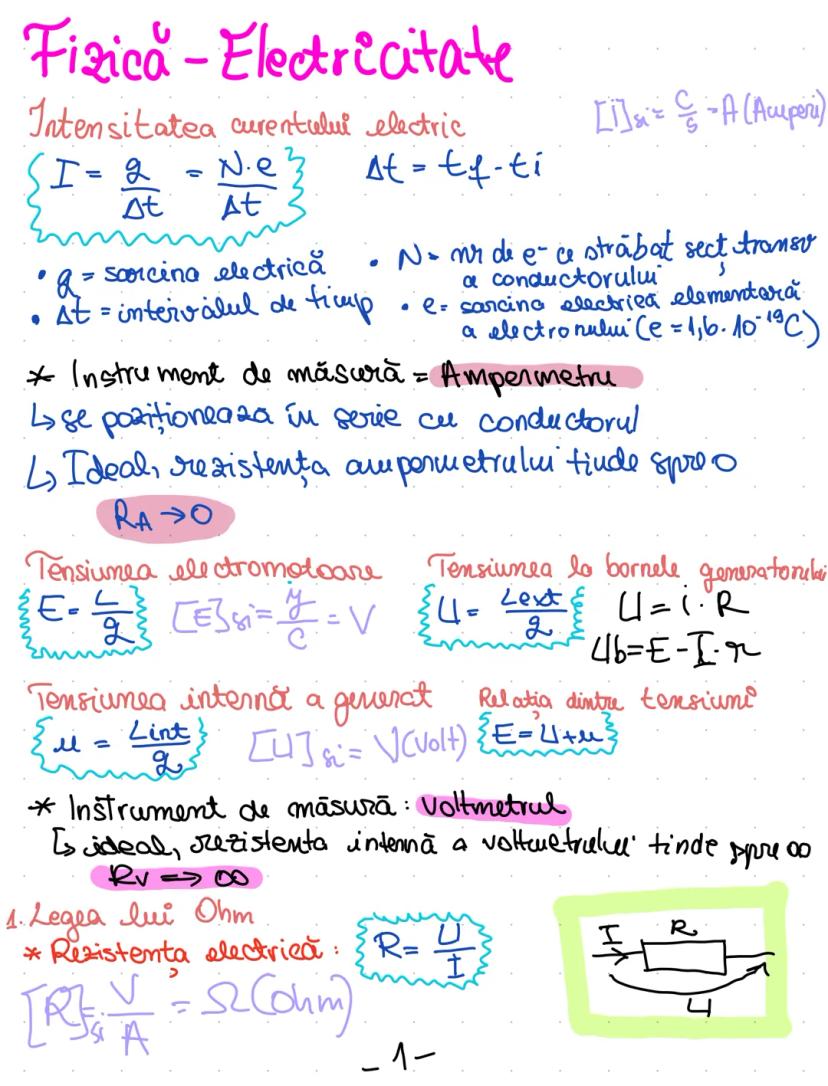 Fizică - Electricitate
Intensitatea curentului electric
[i]si = C/s = A (Amperi)
I = q/Δt = N·e/Δt
Δt = tf - ti
• q = sarcina electrică
• Δt = intervalul de timp
• N = nr de e⁻ ce străbat secț transv
a conductorului
• e = sarcina electrică elementară
a electronului (e = 1,6·10⁻¹⁹C)
* Instrument de măsură = Ampermetru
↳ se poziționeaza în serie cu conductorul
↳ Ideal, rezistența ampermetrului tinde spre 0
RA → 0
Tensiunea electromotoare
E = L/q
[E]si = J/C = V
Tensiunea la bornele generatorului
U = Lext/q
U = i·R
Ub = E - I·r
Tensiunea internă a generat
u = Lint/q
[U]si = V(Volt)
Relația dintre tensiuni
E = U+u
* Instrument de măsură: Voltmetrul
↳ ideal, rezistenta internă a voltmetrului tinde spre ∞
Rv ⟹ ∞
1. Legea lui Ohm
* Rezistența electrică:
R = U/I
[R]si = V/A = Ω(ohm)
I
R
U
-1-